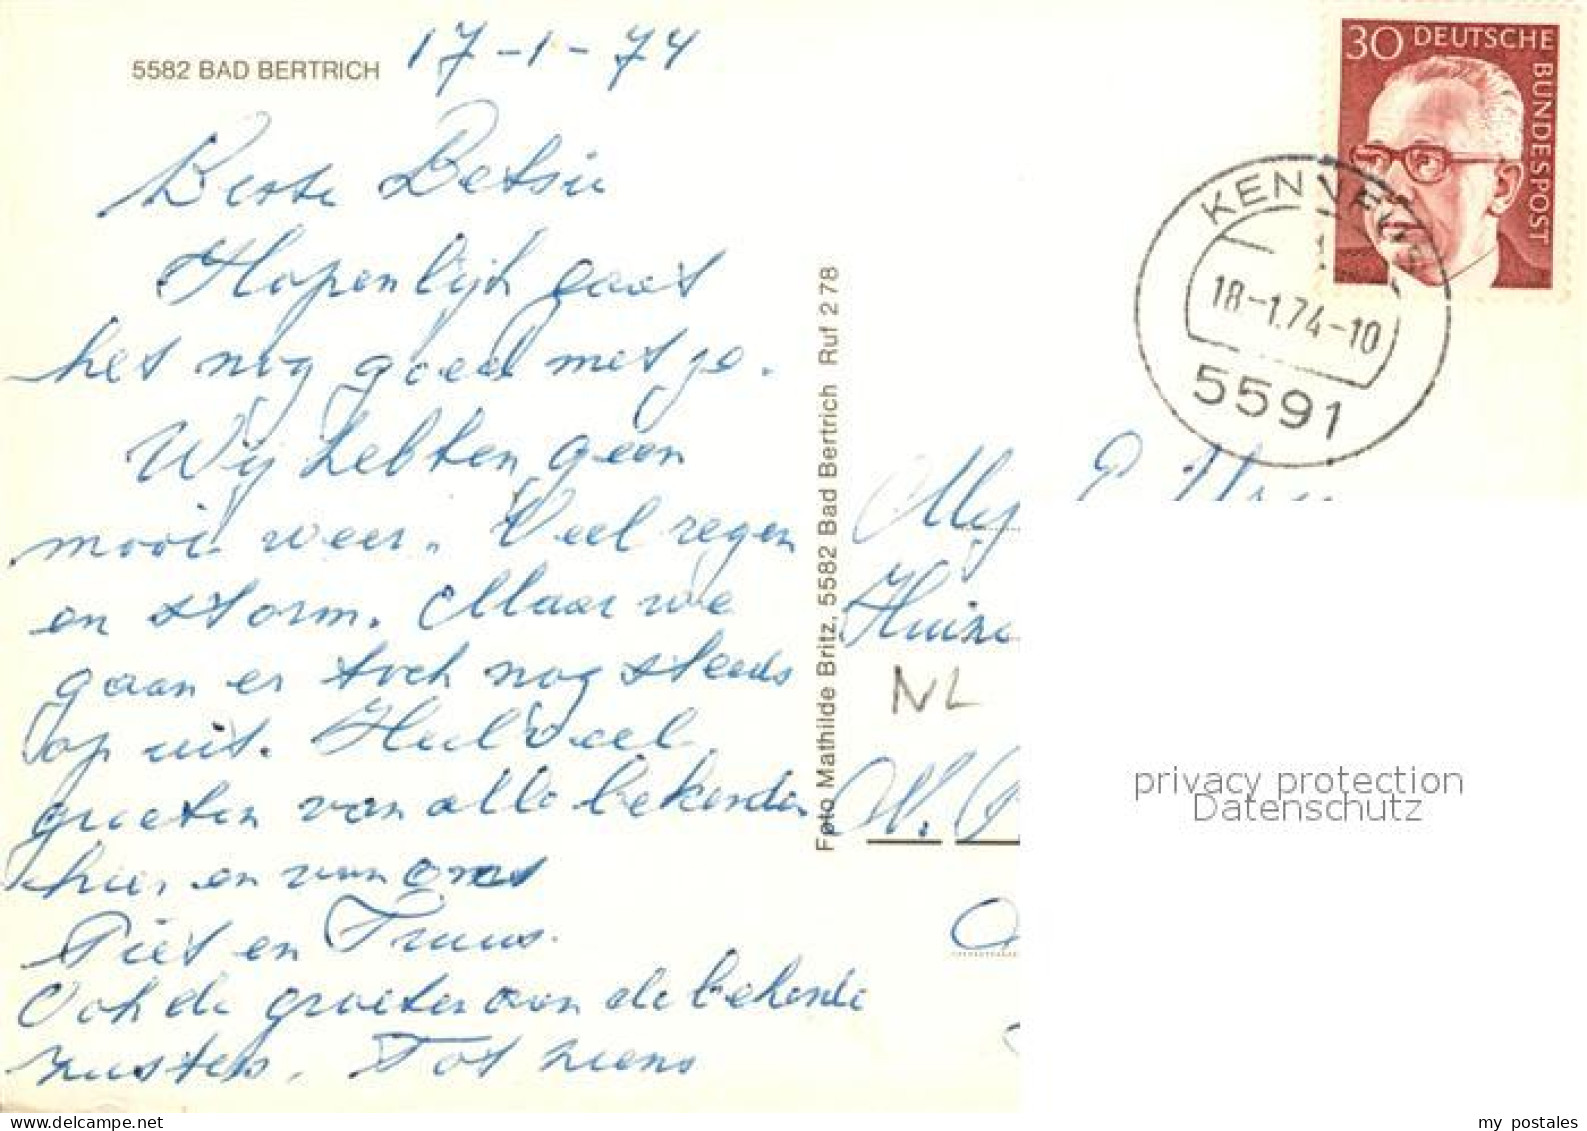 5582 BAD BERTRICH
17-1-74
Beste Betsie
Hopenlijk gaat
het nog goed met je.
Wij hebben geen
mooi weer. Veel regen
en storm. Maar we
gaan er toch nog steeds
op uit. Heel veel
groeten van alle bekenden
hier en van ons
Piet en Truus.
Ook de groeten aan de bekende
zusters. Tot ziens
Foto Mathilde Britz, 5582 Bad Bertrich Ruf 2 78
30 DEUTSCHE BUNDESPOST
18-1.74-10
5591
Mej
Huize
NL
privacy protection
Datenschutz
my postales